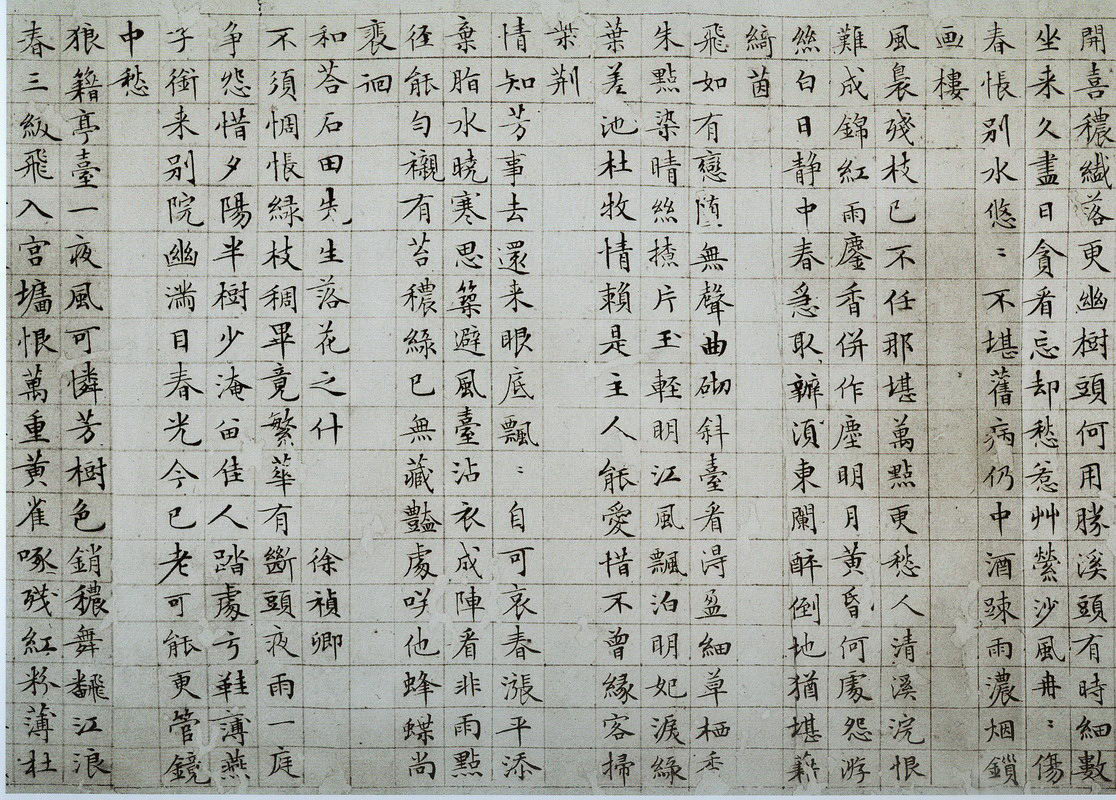 開喜穠纖落更幽樹頭何用勝溪頭有時細數
坐来久盡日貪看忘却愁惹艸縈沙風冉〻傷
春悵别水悠〻不堪舊病仍中酒踈雨濃烟鎖
画樓
風裊殘枝已不任那堪萬點更愁人清溪浣恨
難成錦紅雨鏖香併作塵明月黄昏何處怨游
絲白日静中春急取辦湏東闌醉倒地猶堪藉
綺茵
飛如有戀墮無聲曲砌斜臺看浔盈細草栖香
朱點染晴絲撩片玉輕明江風飄泊明妃淚綠
葉差池杜牧情賴是主人能愛惜不曾緣客掃
柴荆
情知芳事去還来眼底飄〻自可哀春漲平添
棄脂水曉寒思築避風臺沾衣成陣看非雨點
径能勻襯有苔穠綠已無藏豔處咲他蜂蝶尚
裵徊
和荅石田先生落花之什 徐禎卿
不須惆悵緑枝稠畢竟繁華有斷頭夜雨一庭
争怨惜夕陽半樹少淹畱佳人踏處弓鞋薄燕
子銜来别院幽滿目春光今已老可能更管鏡
中愁
狼籍亭臺一夜風可憐芳樹色銷穠舞飜江浪
春三級飛入宫墻恨萬重黄雀啄残紅粉薄杜